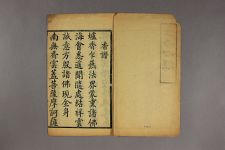 香讚
爐香乍爇法界蒙熏諸佛
海會悉遙聞隨處結祥雲
誠意方殷諸佛現全身
南無香雲蓋菩薩摩訶薩